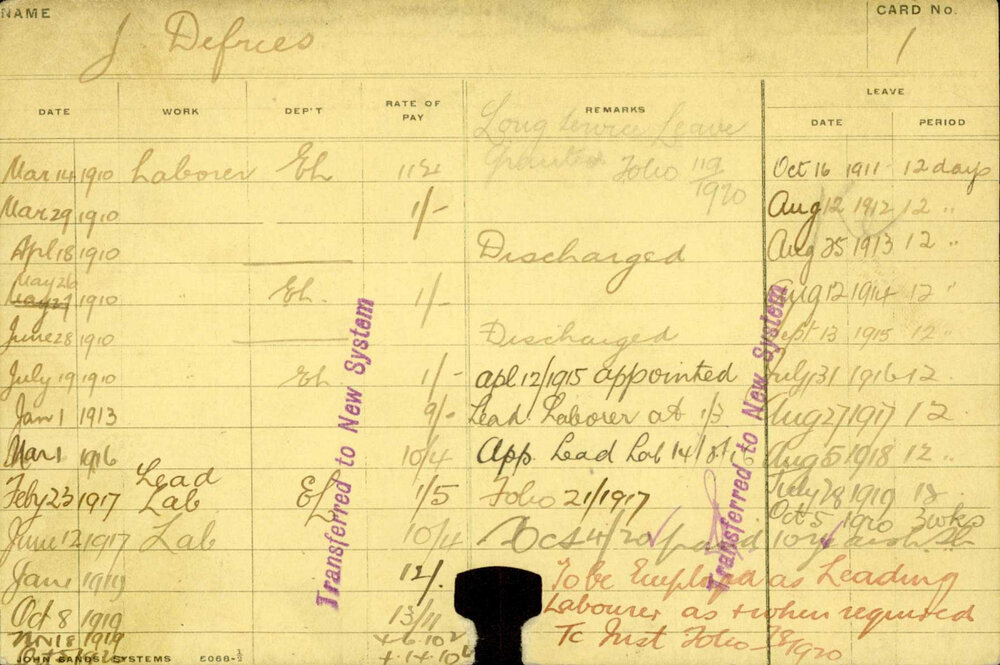 NAME CARD No.
J Defries 1
DATE WORK DEP'T RATE OF PAY REMARKS LEAVE
DATE PERIOD
Long Service Leave
Granted Folio 119/1920
Mar 14 1910 Laborer Eh Oct 16 1911 12 days
Mar 29 1910 1/- Aug 12 1912 12 "
Apl 18 1910 Discharged Aug 25 1913 12 "
May 26
May 27 1910 Eh. 1/- Aug 12 1914 12 "
June 28 1910 Discharged Sept 13 1915 12 "
July 19 1910 Eh 1/- Apl 12/1915 appointed July 31 1916 12
Jan 1 1913 9/- Lead Laborer at 1/3 Aug 27 1917 12
Mar 1 1916 10/4 App. Lead Lab 14/8/16 Aug 5 1918 12
Feby 23 1917 Lead Lab 1/5 Folio 21/1917 July 28 1919 18
Oct 5 1920 3 wks
June 12 1917 Lab 10/4 Oct 4/20 paid
Jan 1 1919 12/. To be Employed as Leading
Oct 8 1919 13/11 Labourer as & when required
Nov 18 1919 Tc Inst Folio 18/1920
Transferred to New System
Transferred to New System
JOHN SANDS SYSTEMS 5068-½